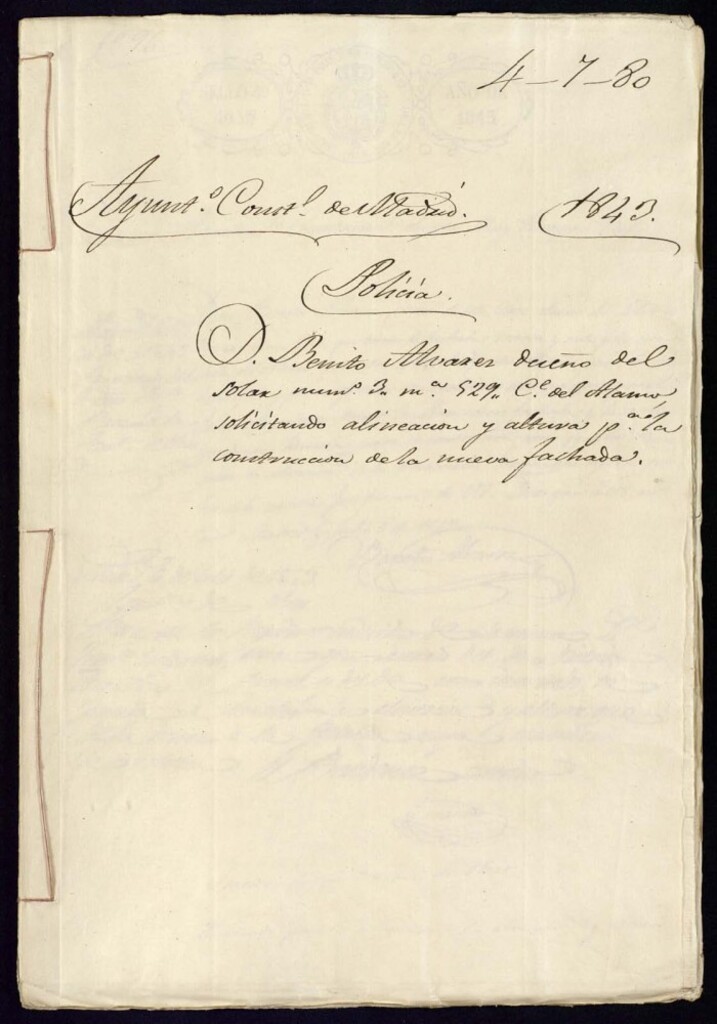 4-7-80
Ayunt.º Const.l de Madrid. 1843.
Policía.
D. Benito Alvarez dueño del
solar num.º 3,, m.ª 529,, C.e del Alamo,
solicitando alineacion y altura p.ª la
construccion de la nueva fachada.